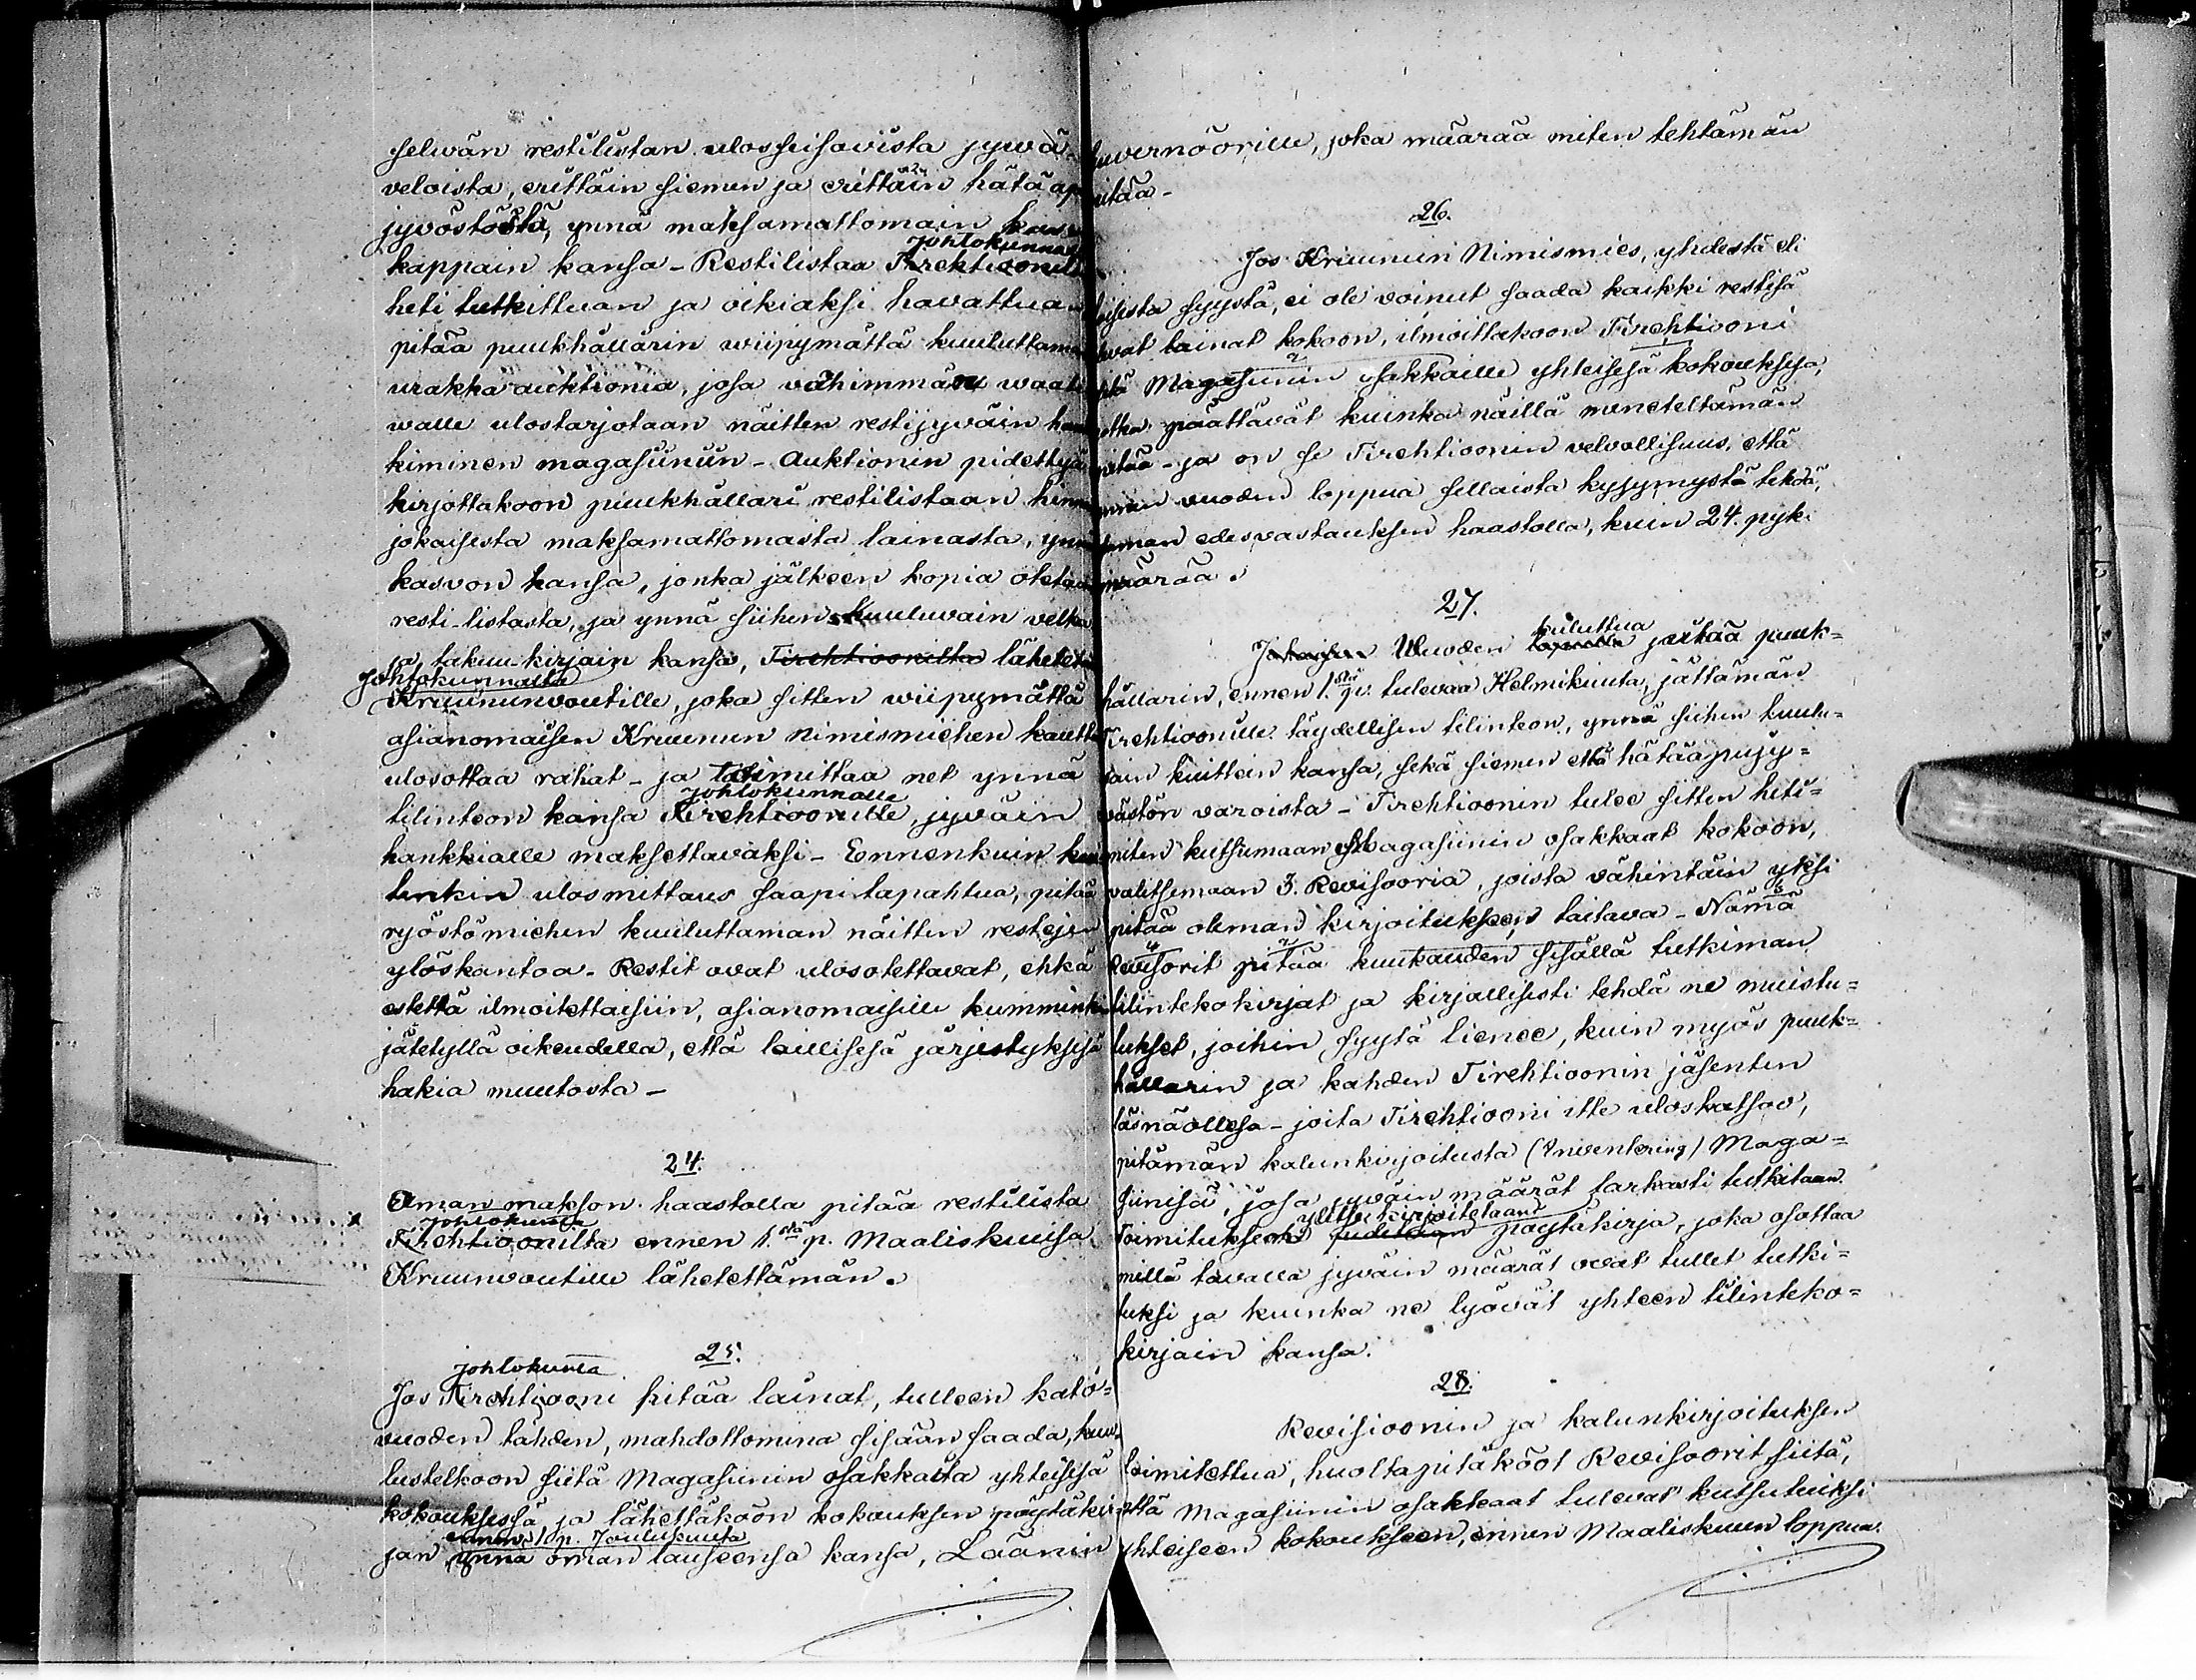 selwän restilistan ulosseisovista jywä-
veloista, erittäin siemen ja erittäin hätäap
jyvöstöstä, ynnä maksamattomain kasvu
Johtokunnan
kappain kansa - Restilistaa Tirehtioonilta
heti tutkittuan ja oikiaksi havattuan
pitää puukhållarin wiipymättä kuuluttama
urakka auktionia, josa vähimmän waati
walle ulostarjotaan näitten restijyväin han
kiminen magasiiniin - Auktionin pidettyä
kirjottakoon puukhållari restilistaan hinn
jokaisesta maksamattomasta lainasta, ynnä
kasvon kansa, jonka jälkeen kopia otetaan
resti-listasta, ja ynnä siihen kuuluwain velka
ja takuu-kirjain kansa, Tirehtioonilta lähetetä
Johtokunnalta
Kruununvoutille, joka sitten wiipymättä
asianomaisen Kruunun nimismiehen kautta
ulosottaa rahat - ja toimittaa net ynnä
Johtokunnalle
tilinteon kansa Tirehtioonille, jyväin
hankkialle maksettavaksi - Ennenkuin kui
tenkin ulosmittaus saapi tapahtua, pitää
ryöstömiehen kuuluttaman näitten restejen
ylöskantoa - Restit ovat ulosotettavat, ehkä
estettä ilmoitettaisiin, asianomaisille kumminki
jätetyllä oikeudella, että laillisesä järjestyksesä
hakia muutosta -
24.
Oman makson haastolla pitää restilista
Johtokunta
Tirehtioonilta ennen 1.stä p. Maaliskuusa
Kruunvoutille lähetettämän.
25.
Johtokunta
Jos Tirehtiooni pitää lainat, tulleen kato-
vuoden tähden, mahdottomina sisään saada, kuu-
lustelkoon siitä Magasiinin osakkailta yhteisesä
kokouksessa ja lähettäköön kokouksen pöytäkir
ennen 1 p. Joulukuuta
jan ynnä oman lauseensa kansa, Läänin
kuvernöörille, joka määrää miten tehtämän
pitää -
26.
Jos Kruunun Nimismies, yhdestä eli
toisesta syystä, ei ole voinut saada kaikki restisä
olevat lainat kokoon, ilmoittakoon Tirehtiooni
sitä Magasiinin osakkaille yhteisesä kokouksesa,
jotka päättävät kuinka näillä meneteltämän
pitää - ja on se Tirehtioonin velvollisuus, että
ennen vuoden loppua sellaista kysymystä tehdä,
saman edesvastauksen haastolla, kuin 24. pyk.
määrää.
27.
kuluttua
Jokaisen Wuoden lopulla pitää puuk-
hållarin, ennen 1.stä p. tulevaa Helmikuuta, jättämän
Tirehtioonille täydellisen tilinteon, ynnä siihen kuulu-
vain kuittein kansa, sekä siemen että hätäapujy-
västön varoista - Tirehtioonin tulee sitten heti-
miten kutsumaan Magasiinin osakkaat kokoon,
valitsemaan 3. Revisooria, joista vähintäin yksi
pitää oleman kirjoitukseen taitava - Nämä
Revisorit pitää kuukauden sisällä tutkiman
tilintekokirjat ja kirjallisesti tehdä ne muistu-
tukset, joihin syytä lienee, kuin myös puuk-
hållarin ja kahden Tirehtioonin jäsenten
läsnäollesa - joita Tirehtiooni itte uloskatsoo,
pitämän kalunkirjoitusta (Inventering) Maga-
siinisä, josa jyväin määrät tarkasti tutkitaan.
ylitse kirjoitetaan
Toimituksen pöytäkirja, joka osottaa
millä tavalla jyväin määrät ovat tullet tutki-
tuksi ja kuinka ne lyövät yhteen tilinteko-
kirjain kansa.
28.
Revisioonin ja kalunkirjoituksen
toimitettua, huolta pitäkööt Revisoorit siitä,
että Magasiinin osakkaat tulevat kutsutuiksi
yhteiseen kokoukseen, ennen Maaliskuun loppua.